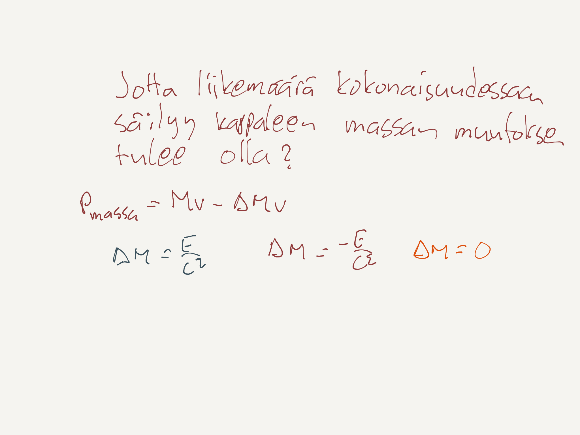 Jotta liikemäärä kokonaisuudessaan
säilyy kappaleen massan muutoksen
tulee olla?
P_massa = Mv - ΔMv
ΔM = E/c² ΔM = -E/c² ΔM = 0